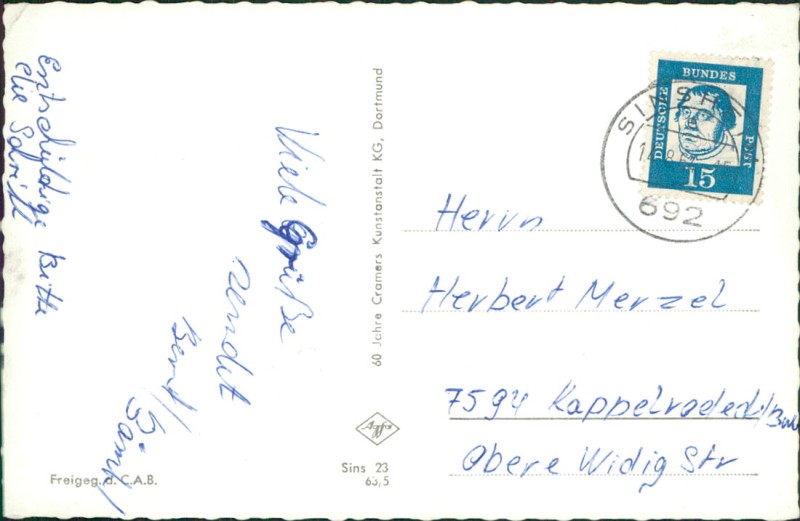 Entschuldige Bitte
die Schrift
Viele Grüße
sendet
Bernd
60 Jahre Cramers Kunstanstalt KG, Dortmund
Agfa
Freigeg. d. C.A.B.
Sins 23
63,5
DEUTSCHE
BUNDES
POST
15
SINSH
692
Herrn
Herbert Merzel
7594 Kappelrodeck/
Obere Widig Str